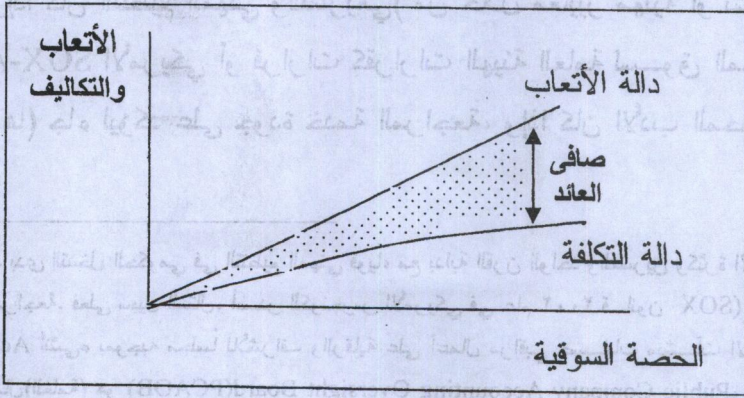 الأتعاب
والتكاليف
دالة الأتعاب
صافى
العائد
دالة التكلفة
الحصة السوقية